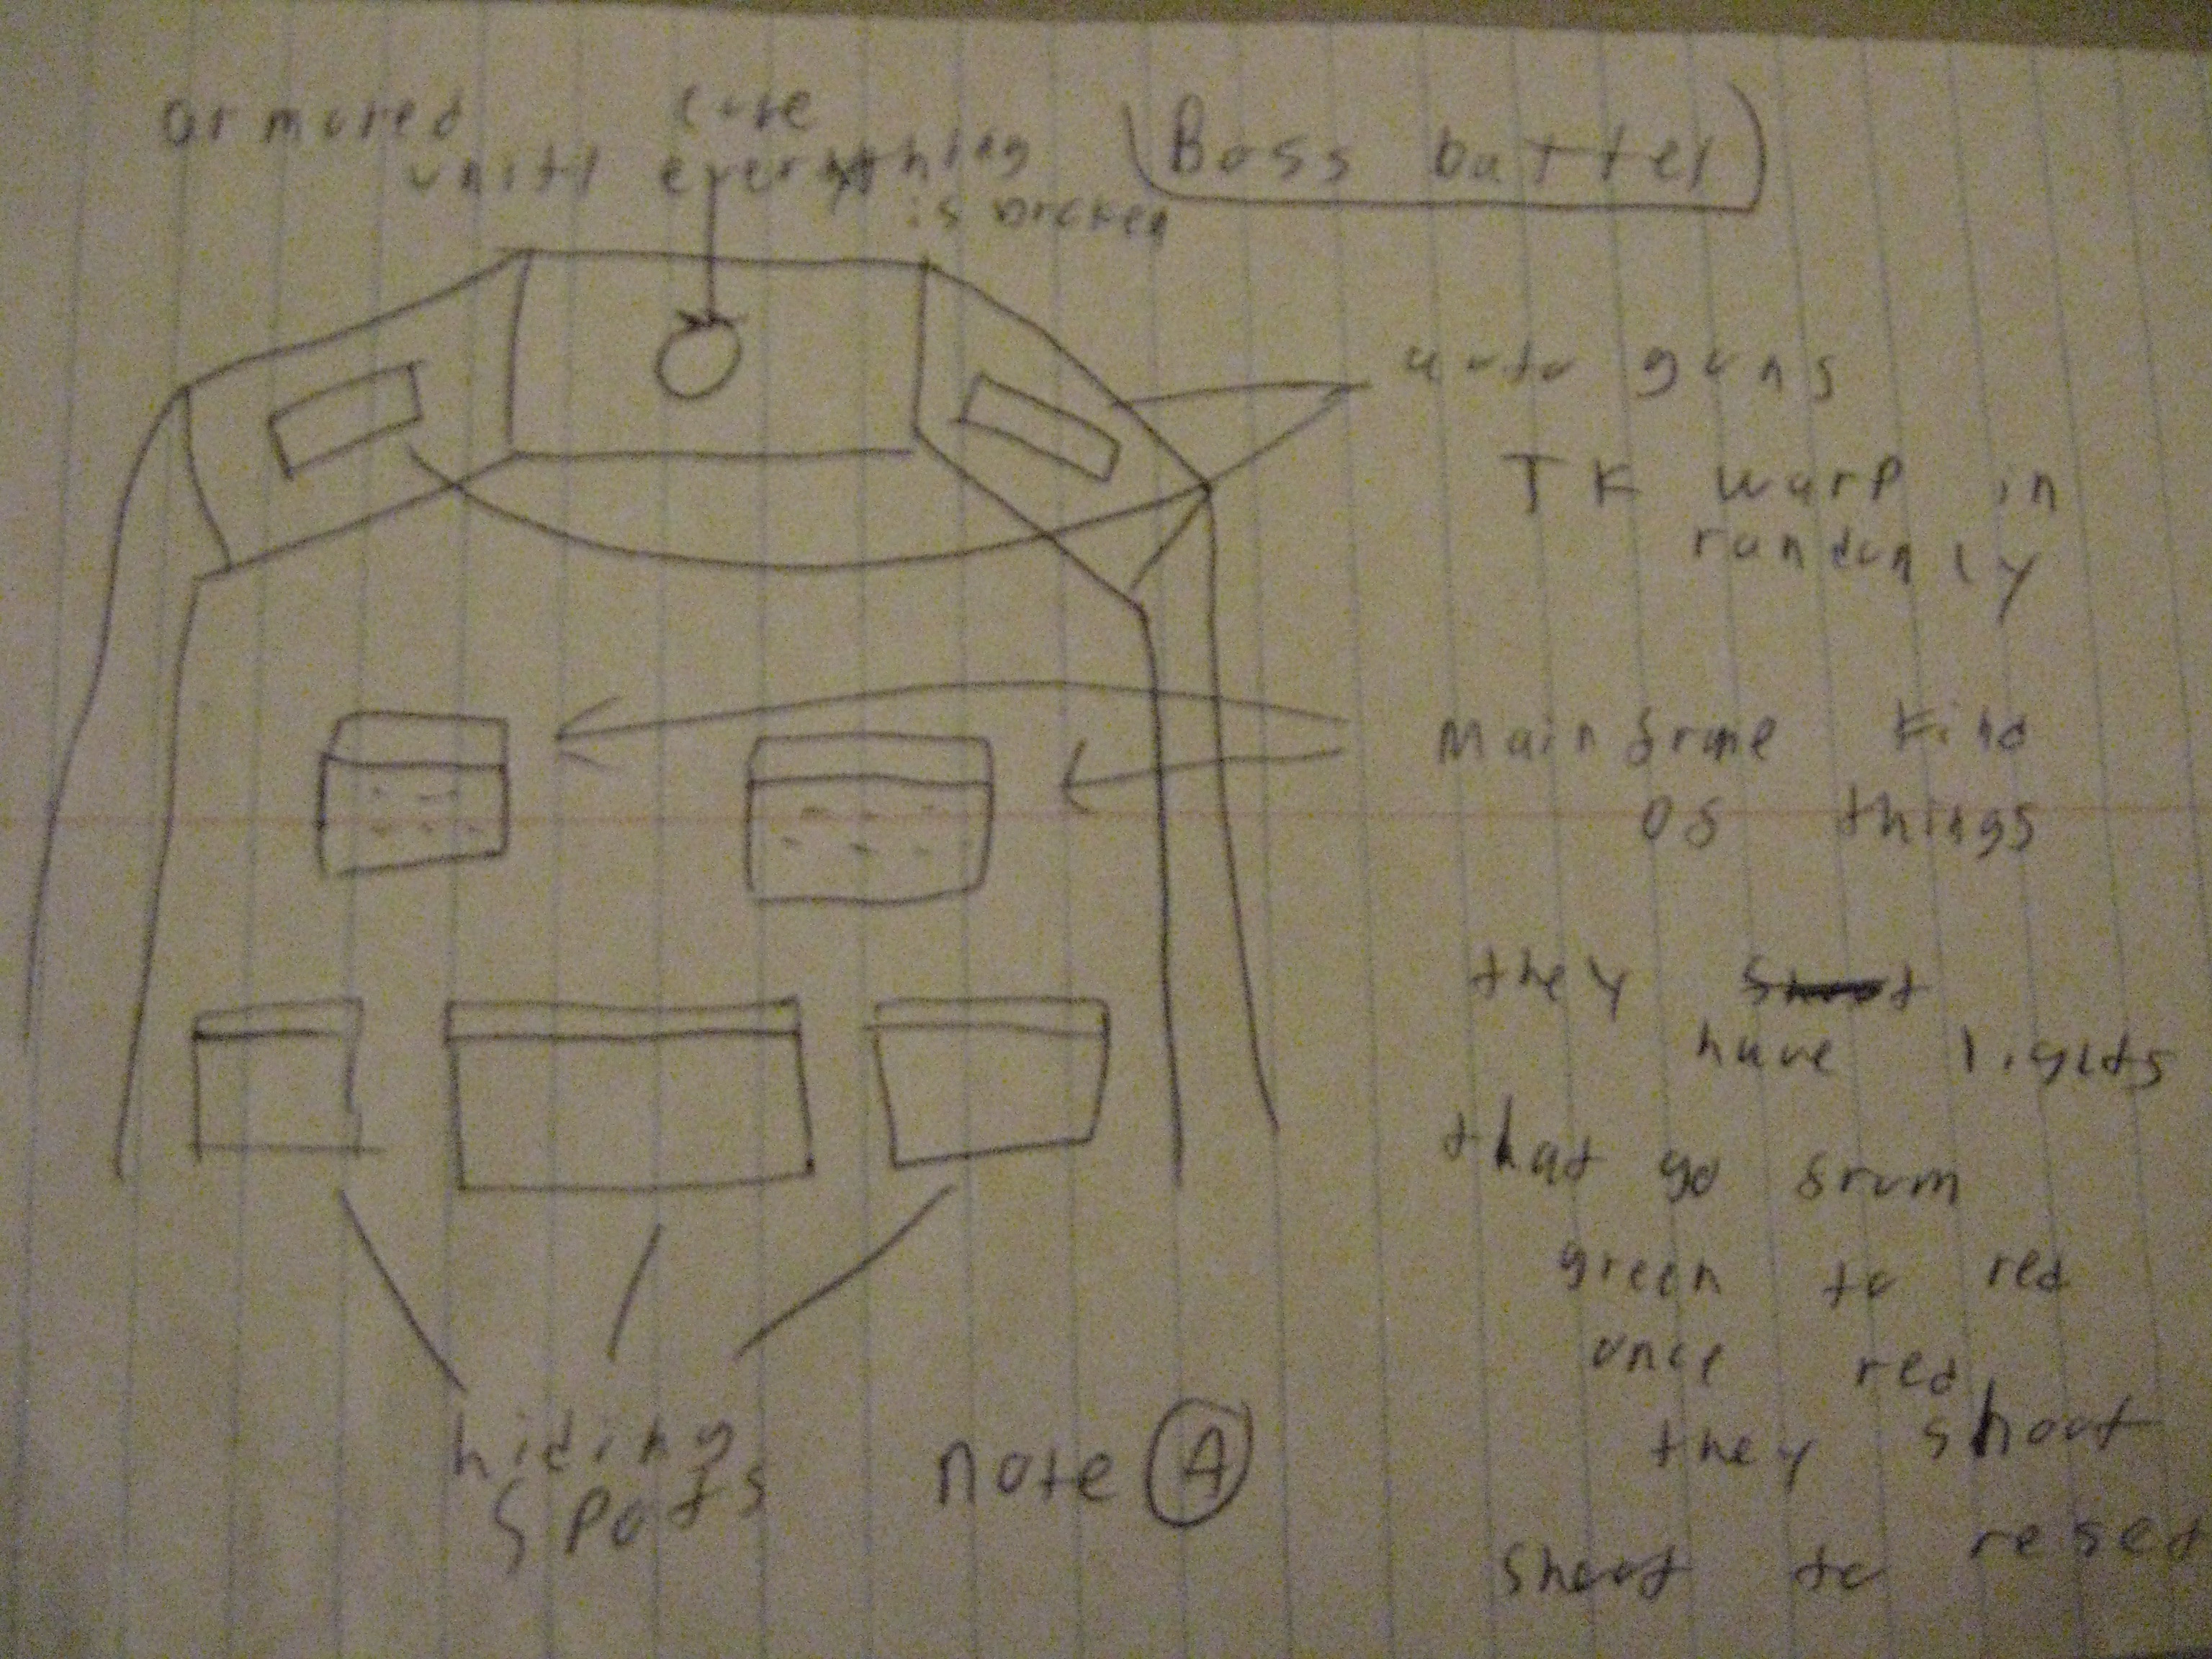 armored core
unitl everything
is broken
Boss battel
auto guns
TK warp in
randomly
Mainframe kind
of things
they
have lights
that go from
green to red
once red
they shoot
shoot to reset
hiding
spots
note A